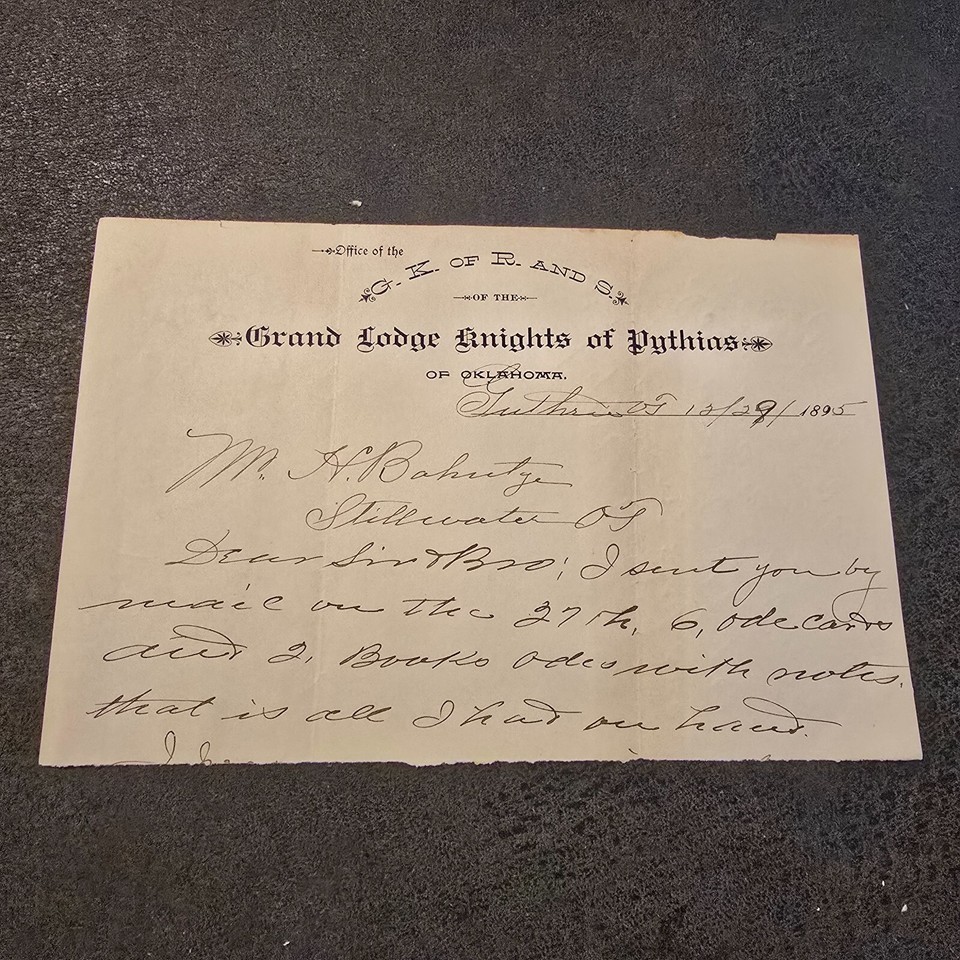 Office of the
G. K. OF R. AND S.
OF THE
Grand Lodge Knights of Pythias
OF OKLAHOMA.
Guthrie OT 12/29/1895
Mr. H. Bahntge
Stillwater OT
Dear Sir & Bro; I sent you by
mail on the 27th, 6, ode cards
and 2, Books odes with notes.
that is all I had on hand.